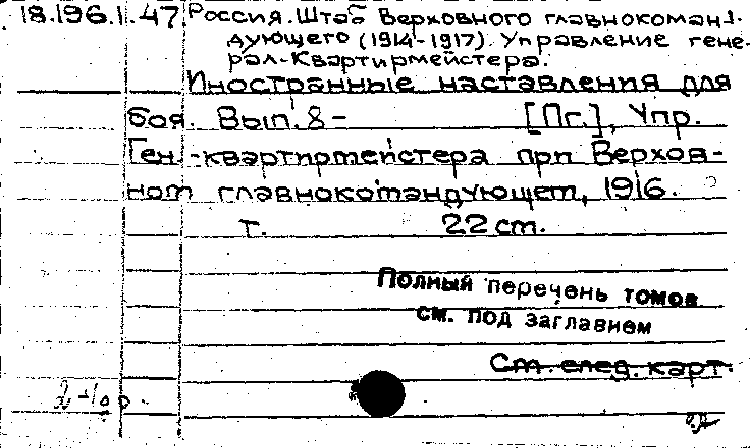 18.196.1.47 Россия. Штаб Верховного главнокоманд-
дующего (1914-1917). Управление гене-
рал-квартирмейстера.
Иностранные наставления для
боя. Вып. 8- [Пг.], Упр.
Ген.-квартирмейстера при Верхов-
ном главнокомандующем, 1916.
т. 22 см.
Полный перечень томов
см. под заглавием
См. след. карт.